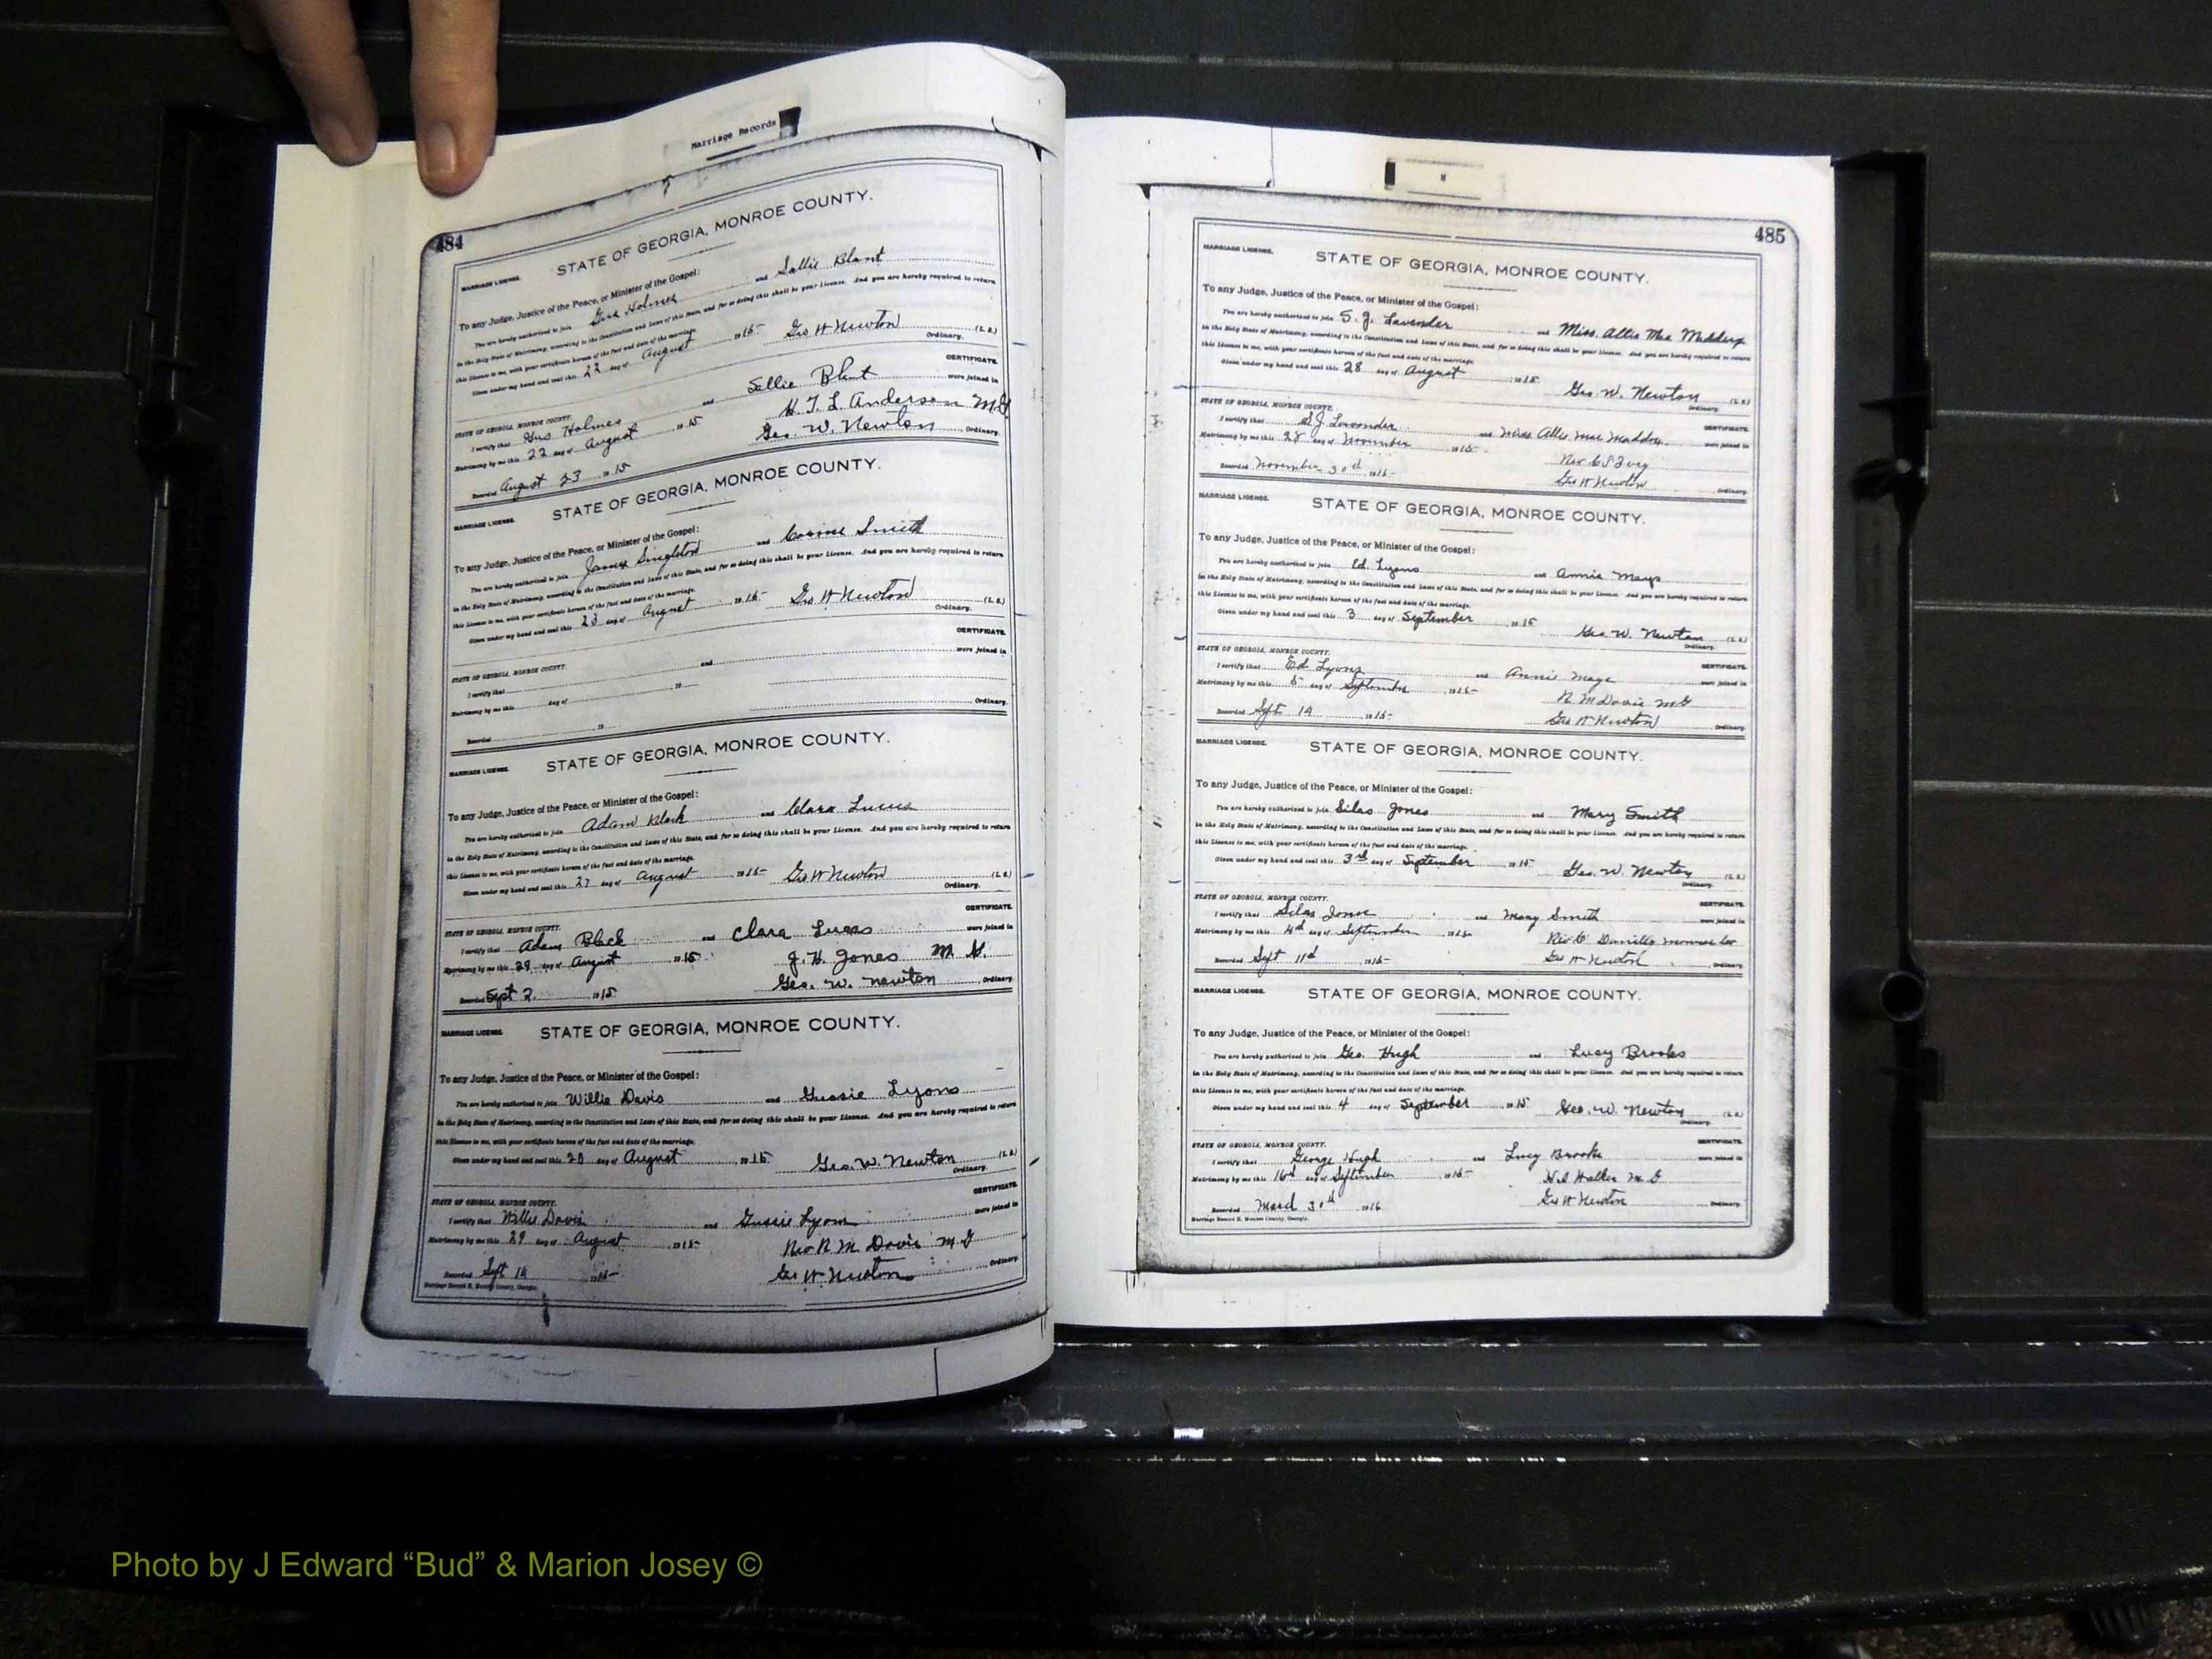 Marriage Records
484
MARRIAGE LICENSE.
STATE OF GEORGIA, MONROE COUNTY.
To any Judge, Justice of the Peace, or Minister of the Gospel:
You are hereby authorized to join Gus Holmes and Sallie Blunt
in the Holy State of Matrimony, according to the Constitution and Laws of this State, and for so doing this shall be your License. And you are hereby required to return
this License to me, with your certificate hereon of the fact and date of the marriage.
Given under my hand and seal this 22 day of August 1915 Geo W Newton (L. S.)
Ordinary.
STATE OF GEORGIA, MONROE COUNTY. CERTIFICATE.
I certify that Gus Holmes and Sallie Blunt were joined in
Matrimony by me this 22 day of August 1915 H. T. L. Anderson M.G
Recorded August 23 1915 Geo. W. Newton Ordinary.
MARRIAGE LICENSE.
STATE OF GEORGIA, MONROE COUNTY.
To any Judge, Justice of the Peace, or Minister of the Gospel:
You are hereby authorized to join James Singleton and Corine Smith
in the Holy State of Matrimony, according to the Constitution and Laws of this State, and for so doing this shall be your License. And you are hereby required to return
this License to me, with your certificate hereon of the fact and date of the marriage.
Given under my hand and seal this 23 day of August 1915 Geo W Newton (L. S.)
Ordinary.
STATE OF GEORGIA, MONROE COUNTY. CERTIFICATE.
I certify that and were joined in
Matrimony by me this day of 19
Recorded 19 Ordinary.
MARRIAGE LICENSE.
STATE OF GEORGIA, MONROE COUNTY.
To any Judge, Justice of the Peace, or Minister of the Gospel:
You are hereby authorized to join Adam Black and Clara Lucas
in the Holy State of Matrimony, according to the Constitution and Laws of this State, and for so doing this shall be your License. And you are hereby required to return
this License to me, with your certificate hereon of the fact and date of the marriage.
Given under my hand and seal this 27 day of August 1915 Geo W Newton (L. S.)
Ordinary.
STATE OF GEORGIA, MONROE COUNTY. CERTIFICATE.
I certify that Adam Black and Clara Lucas were joined in
Matrimony by me this 29 day of August 1915 J. H. Jones M. G.
Recorded Sept 2 1915 Geo. W. Newton Ordinary.
MARRIAGE LICENSE.
STATE OF GEORGIA, MONROE COUNTY.
To any Judge, Justice of the Peace, or Minister of the Gospel:
You are hereby authorized to join Willie Davis and Gussie Lyons
in the Holy State of Matrimony, according to the Constitution and Laws of this State, and for so doing this shall be your License. And you are hereby required to return
this License to me, with your certificate hereon of the fact and date of the marriage.
Given under my hand and seal this 28 day of August 1915 Geo. W. Newton (L. S.)
Ordinary.
STATE OF GEORGIA, MONROE COUNTY. CERTIFICATE.
I certify that Willie Davis and Gussie Lyons were joined in
Matrimony by me this 29 day of August 1915 Rev R M. Davis M G
Recorded Sept 14 1915 Geo W Newton Ordinary.
Marriage Record H, Monroe County, Georgia.
485
MARRIAGE LICENSE.
STATE OF GEORGIA, MONROE COUNTY.
To any Judge, Justice of the Peace, or Minister of the Gospel:
You are hereby authorized to join S. J. Lavender and Miss. Allie Mae Maddux
in the Holy State of Matrimony, according to the Constitution and Laws of this State, and for so doing this shall be your License. And you are hereby required to return
this License to me, with your certificate hereon of the fact and date of the marriage.
Given under my hand and seal this 28 day of August 1915
Geo. W. Newton (L. S.)
Ordinary.
STATE OF GEORGIA, MONROE COUNTY. CERTIFICATE.
I certify that S J Lavender and Miss Allie Mae Maddox were joined in
Matrimony by me this 28 day of November 1915 Rev
Recorded November 30d 1915 Geo W Newton Ordinary.
MARRIAGE LICENSE.
STATE OF GEORGIA, MONROE COUNTY.
To any Judge, Justice of the Peace, or Minister of the Gospel:
You are hereby authorized to join Ed. Lyons and Annie Mays
in the Holy State of Matrimony, according to the Constitution and Laws of this State, and for so doing this shall be your License. And you are hereby required to return
this License to me, with your certificate hereon of the fact and date of the marriage.
Given under my hand and seal this 3 day of September 1915 Geo. W. Newton (L. S.)
Ordinary.
STATE OF GEORGIA, MONROE COUNTY. CERTIFICATE.
I certify that Ed Lyons and Annie Mays were joined in
Matrimony by me this 5 day of September 1915 R. M Davis M G
Recorded Sept 14 1915 Geo W Newton Ordinary.
MARRIAGE LICENSE.
STATE OF GEORGIA, MONROE COUNTY.
To any Judge, Justice of the Peace, or Minister of the Gospel:
You are hereby authorized to join Silas Jones and Mary Smith
in the Holy State of Matrimony, according to the Constitution and Laws of this State, and for so doing this shall be your License. And you are hereby required to return
this License to me, with your certificate hereon of the fact and date of the marriage.
Given under my hand and seal this 3rd day of September 1915 Geo. W. Newton (L. S.)
Ordinary.
STATE OF GEORGIA, MONROE COUNTY. CERTIFICATE.
I certify that Silas Jones and Mary Smith were joined in
Matrimony by me this 4d day of September 1915 Rev C Danills Monroe Co
Recorded Sept 11d 1915 Geo W Newton Ordinary.
MARRIAGE LICENSE.
STATE OF GEORGIA, MONROE COUNTY.
To any Judge, Justice of the Peace, or Minister of the Gospel:
You are hereby authorized to join Geo. Hugh and Lucy Brooks
in the Holy State of Matrimony, according to the Constitution and Laws of this State, and for so doing this shall be your License. And you are hereby required to return
this License to me, with your certificate hereon of the fact and date of the marriage.
Given under my hand and seal this 4 day of September 1915 Geo. W. Newton (L. S.)
Ordinary.
STATE OF GEORGIA, MONROE COUNTY. CERTIFICATE.
I certify that George Hugh and Lucy Brooks were joined in
Matrimony by me this 16d day of September 1915 H. S Walker M G
Recorded March 30d 1916 Geo W Newton Ordinary.
Marriage Record H, Monroe County, Georgia.
Photo by J Edward “Bud” & Marion Josey ©